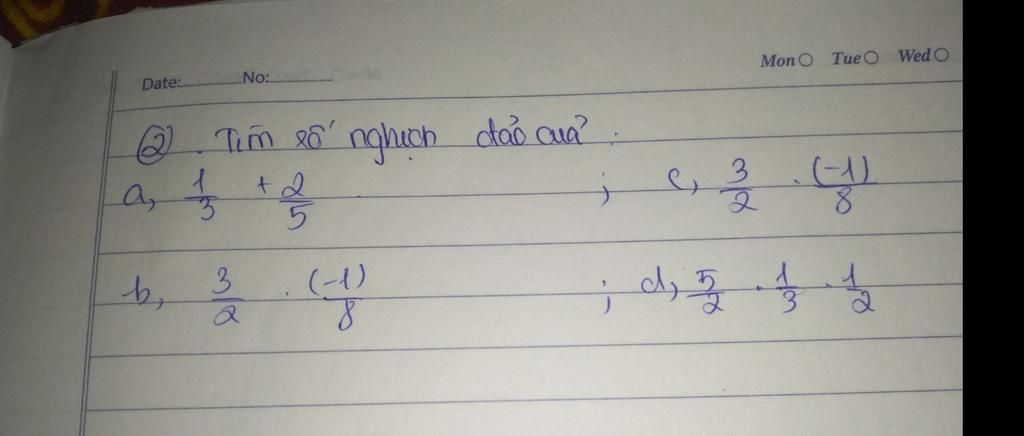 Date:............... No:...............
Mon○ Tue○ Wed○
② . Tìm số nghịch đảo của? :
a, 1/3 + 2/5 ; c, 3/2 . (-1)/8
b, 3/2 . (-1)/8 ; d, 5/2 . 1/3 . 1/2